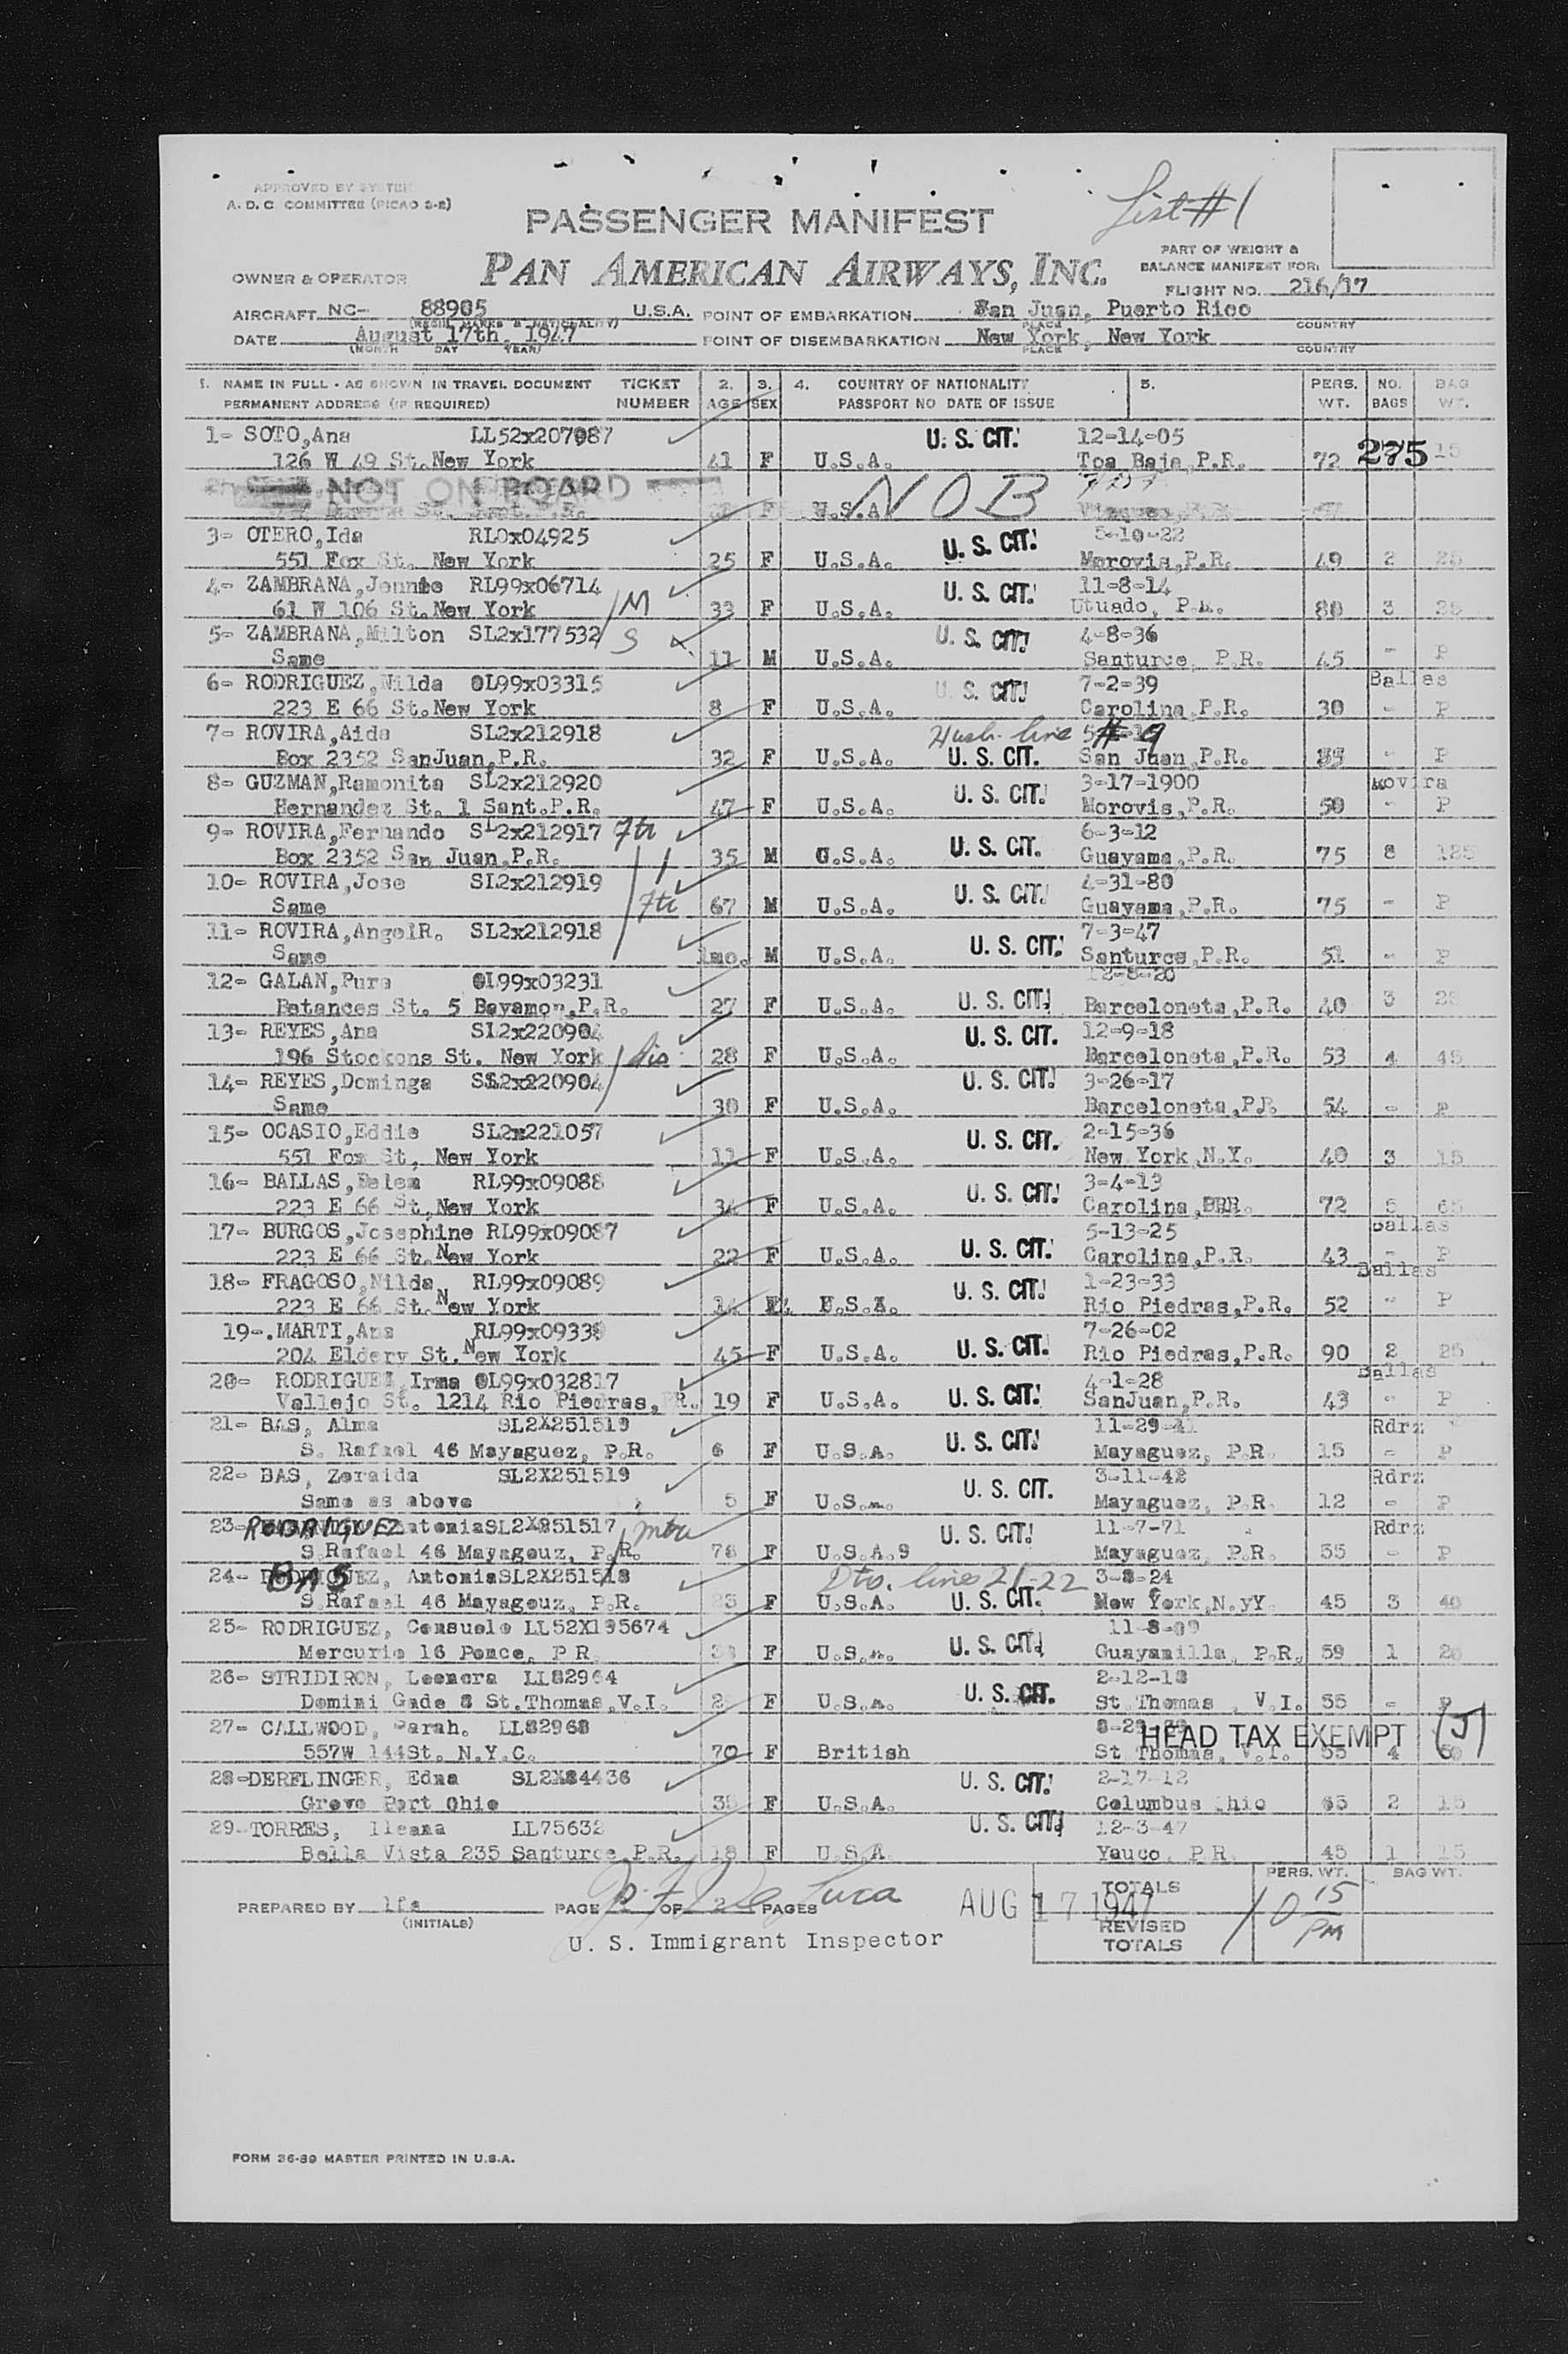 APPROVED BY SYSTEM
A. D. C. COMMITTEE (PICAO S-2)
List #1
PASSENGER MANIFEST
PART OF WEIGHT &
BALANCE MANIFEST FOR:
OWNER & OPERATOR PAN AMERICAN AIRWAYS, INC.
FLIGHT NO. 216/17
AIRCRAFT NC- 88905 U.S.A. POINT OF EMBARKATION San Juan, Puerto Rico
(REGIS. MARKS & NATIONALITY) PLACE COUNTRY
DATE August 17th, 1947 POINT OF DISEMBARKATION New York, New York
(MONTH DAY YEAR) PLACE COUNTRY
1. NAME IN FULL - AS SHOWN IN TRAVEL DOCUMENT TICKET 2. 3. 4. COUNTRY OF NATIONALITY 5. PERS. NO. BAG
PERMANENT ADDRESS (IF REQUIRED) NUMBER AGE SEX PASSPORT NO DATE OF ISSUE WT. BAGS WT.
1- SOTO,Ana LL52x207087 U. S. CIT. 12-14-05
126 W 49 St.New York 41 F U.S.A. Toa Baja,P.R. 72 275 15
NOT ON BOARD NOB
F U.S.A.
3- OTERO,Ida RL0x04925 U. S. CIT. 5-10-22
551 Fox St. New York 25 F U.S.A. Morovis,P.R. 49 2 25
4- ZAMBRANA,Jennie RL99x06714 U. S. CIT. 11-8-14
61 W 106 St.New York M 33 F U.S.A. Utuado, P.R. 80 3 25
5- ZAMBRANA,Milton SL2x177532 S U. S. CIT. 4-8-36
Same 11 M U.S.A. Santurce, P.R. 45 - P
6- RODRIGUEZ,Nilda OL99x03315 U. S. CIT. 7-2-39 Ballas
223 E 66 St.New York 8 F U.S.A. Carolina,P.R. 30 - P
7- ROVIRA,Aida SL2x212918 Husb. line #9
Box 2352 SanJuan,P.R. 32 F U.S.A. U. S. CIT. San Juan,P.R. - P
8- GUZMAN,Ramonita SL2x212920 U. S. CIT. 3-17-1900 Rovira
Hernandez St. 1 Sant.P.R. 47 F U.S.A. Morovis,P.R. 50 - P
9- ROVIRA,Fernando SL2x212917 U. S. CIT. 6-3-12
Box 2352 San Juan,P.R. 35 M U.S.A. Guayama,P.R. 75 8 125
10- ROVIRA,Jose SL2x212919 U. S. CIT. 4-31-80
Same 67 M U.S.A. Guayama,P.R. 75 - P
11- ROVIRA,AngelR. SL2x212918 U. S. CIT. 7-3-47
Same 1mo. M U.S.A. Santurce,P.R. 51 - P
12- GALAN,Pura OL99x03231 U. S. CIT. 12-8-20
Betances St. 5 Bayamon,P.R. 27 F U.S.A. Barceloneta,P.R. 40 3 25
13- REYES,Ana SL2x220904 U. S. CIT. 12-9-18
196 Stockons St. New York sis 28 F U.S.A. Barceloneta,P.R. 53 4 45
14- REYES,Dominga SL2x220904 U. S. CIT. 3-26-17
Same 30 F U.S.A. Barceloneta,P.R. 54 - P
15- OCASIO,Eddie SL2x221057 U. S. CIT. 2-15-36
551 Fox St, New York 11 F U.S.A. New York,N.Y. 40 3 15
16- BALLAS,Belem RL99x09088 U. S. CIT. 3-4-13
223 E 66 St,New York 34 F U.S.A. Carolina, 72 5 65
17- BURGOS,Josephine RL99x09087 U. S. CIT. 5-13-25 Ballas
223 E 66 St.New York 22 F U.S.A. Carolina,P.R. 43 - P
18- FRAGOSO,Nilda RL99x09089 U. S. CIT. 1-23-33 Ballas
223 E 66 St.New York 14 U.S.A. Rio Piedras,P.R. 52 - P
19-.MARTI,Ana RL99x09338 U. S. CIT. 7-26-02
204 Eldery St.New York 45 F U.S.A. Rio Piedras,P.R. 90 2 25
20- RODRIGUEZ,Irma OL99x032817 U. S. CIT. 4-1-28 Ballas
Vallejo St. 1214 Rio Piedras, PR. 19 F U.S.A. SanJuan,P.R. 43 - P
21- BAS, Alma SL2X251519 U. S. CIT. 11-29-41 Rdrz
S. Rafael 46 Mayaguez, P.R. 6 F U.S.A. Mayaguez, P.R 15 - P
22- BAS, Zoraida SL2X251519 U. S. CIT. 3-11-42 Rdrz
Same as above 5 F U.S.A. Mayaguez, P.R 12 - P
23- RODRIGUEZ AntoniaSL2X251517 U. S. CIT. 11-7-71 Rdrz
S.Rafael 46 Mayagouz, P.R. 76 F U.S.A.9 Mayaguez, P.R. 55 - P
24- BAS, AntoniaSL2X251518 Dts. lines 21-22 3-8-24
S.Rafael 46 Mayagouz, P.R. 23 F U.S.A. U. S. CIT. New York,N.yY 45 3 40
25- RODRIGUEZ, Consuelo LL52X195674 U. S. CIT. 11-8-09
Mercurio 16 Ponce, P R F U.S.A. Guayanilla, P.R. 59 1 20
26- STRIDIRON, Leenora LL82964 U. S. CIT. 2-12-18
Domini Gade 8 St.Thomas,V.I. F U.S.A. St Thomas , V.I. 55 - P
27- CALLWOOD, Sarah. LL82968 HEAD TAX EXEMPT (J)
557W 144St. N.Y.C. 70 F British St Thomas, V.I. 55 4
28-DERFLINGER, Edna SL2X84436 U. S. CIT. 2-17-12
Grove Port Ohio 35 F U.S.A. Columbus Ohio 65 2 15
29-TORRES, Ileana LL75632 U. S. CIT. 12-3-47
Bella Vista 235 Santurce,P.R. 18 F U.S.A Yauco, P.R. 45 1 15
PERS. WT. BAG WT.
PREPARED BY lfs PAGE OF 2 PAGES AUG 17 1947 TOTALS
(INITIALS) REVISED TOTALS 10 15 PM
U. S. Immigrant Inspector
FORM 36-39 MASTER PRINTED IN U.S.A.